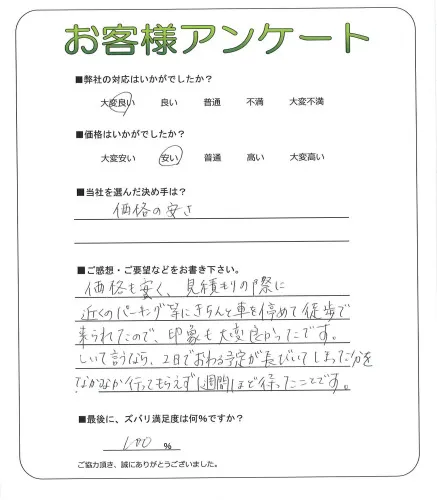 お客様アンケート
■弊社の対応はいかがでしたか？
大変良い 良い 普通 不満 大変不満
■価格はいかがでしたか？
大変安い 安い 普通 高い 大変高い
■当社を選んだ決め手は？
価格の安さ
■ご感想・ご要望などをお書き下さい。
価格も安く、見積もりの際に
近くのパーキング等にきちんと車を停めて徒歩で
来られたので、印象も大変良かったです。
しいて言うなら、2日でおわる予定が長びいてしまった分を
なかなか行ってもらえず1週間ほど待ったことです。
■最後に、ズバリ満足度は何％ですか？
100 ％
ご協力頂き、誠にありがとうございました。